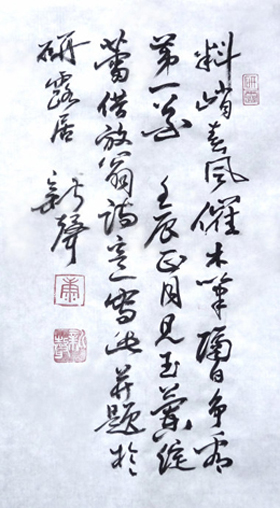 料峭春風催木筆隔日争看
第一花 壬辰正月見玉蘭綻
蕾借放翁詩意寫此并題於
研露居 聲